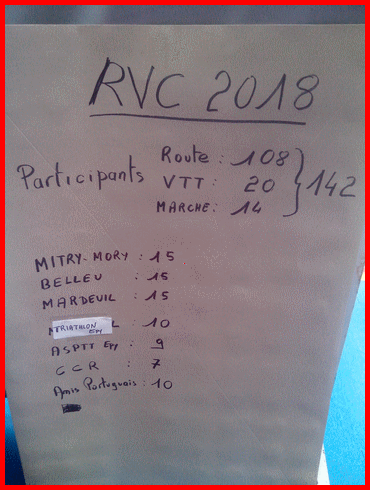 RVC 2018
Participants
Route : 108
VTT : 20
MARCHE : 14
142
MITRY-MORY : 15
BELLEU : 15
MARDEUIL : 15
TRIATHLON EPY L : 10
ASPTT EPY : 9
CCR : 7
Amis Portuguais : 10